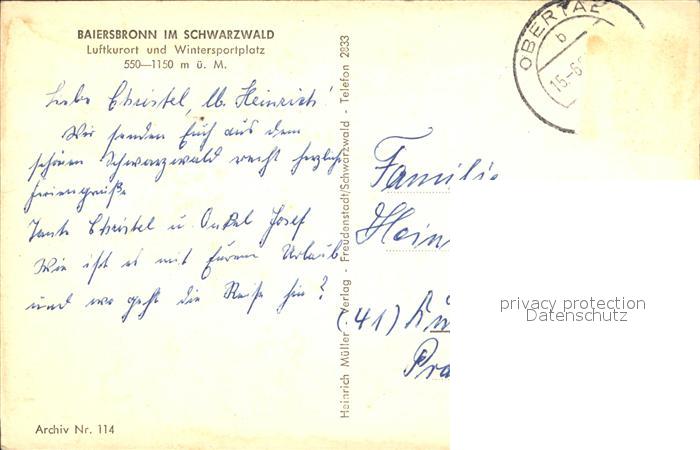 BAIERSBRONN IM SCHWARZWALD
Luftkurort und Wintersportplatz
550—1150 m ü. M.
OBERTAL
b
15.-6
Liebe Christel, lb. Heinrich!
Wir senden Euch aus dem
schönen Schwarzwald recht herzliche
Feriengrüße
Tante Christel u. Onkel Josef
Wie ist es mit Eurem Urlaub
und wo geht die Reise hin?
Heinrich Müller - Verlag - Freudenstadt/Schwarzwald - Telefon 2833
Familie
Hein
(41)
privacy protection
Datenschutz
Archiv Nr. 114